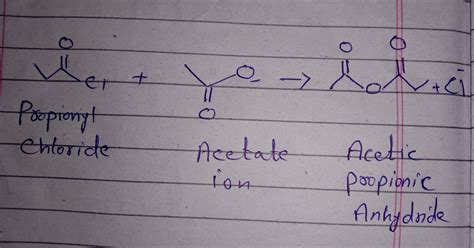 O O O
Cl + O- → O + Cl-
O
Propionyl Acetate Acetic
Chloride ion propionic
Anhydride